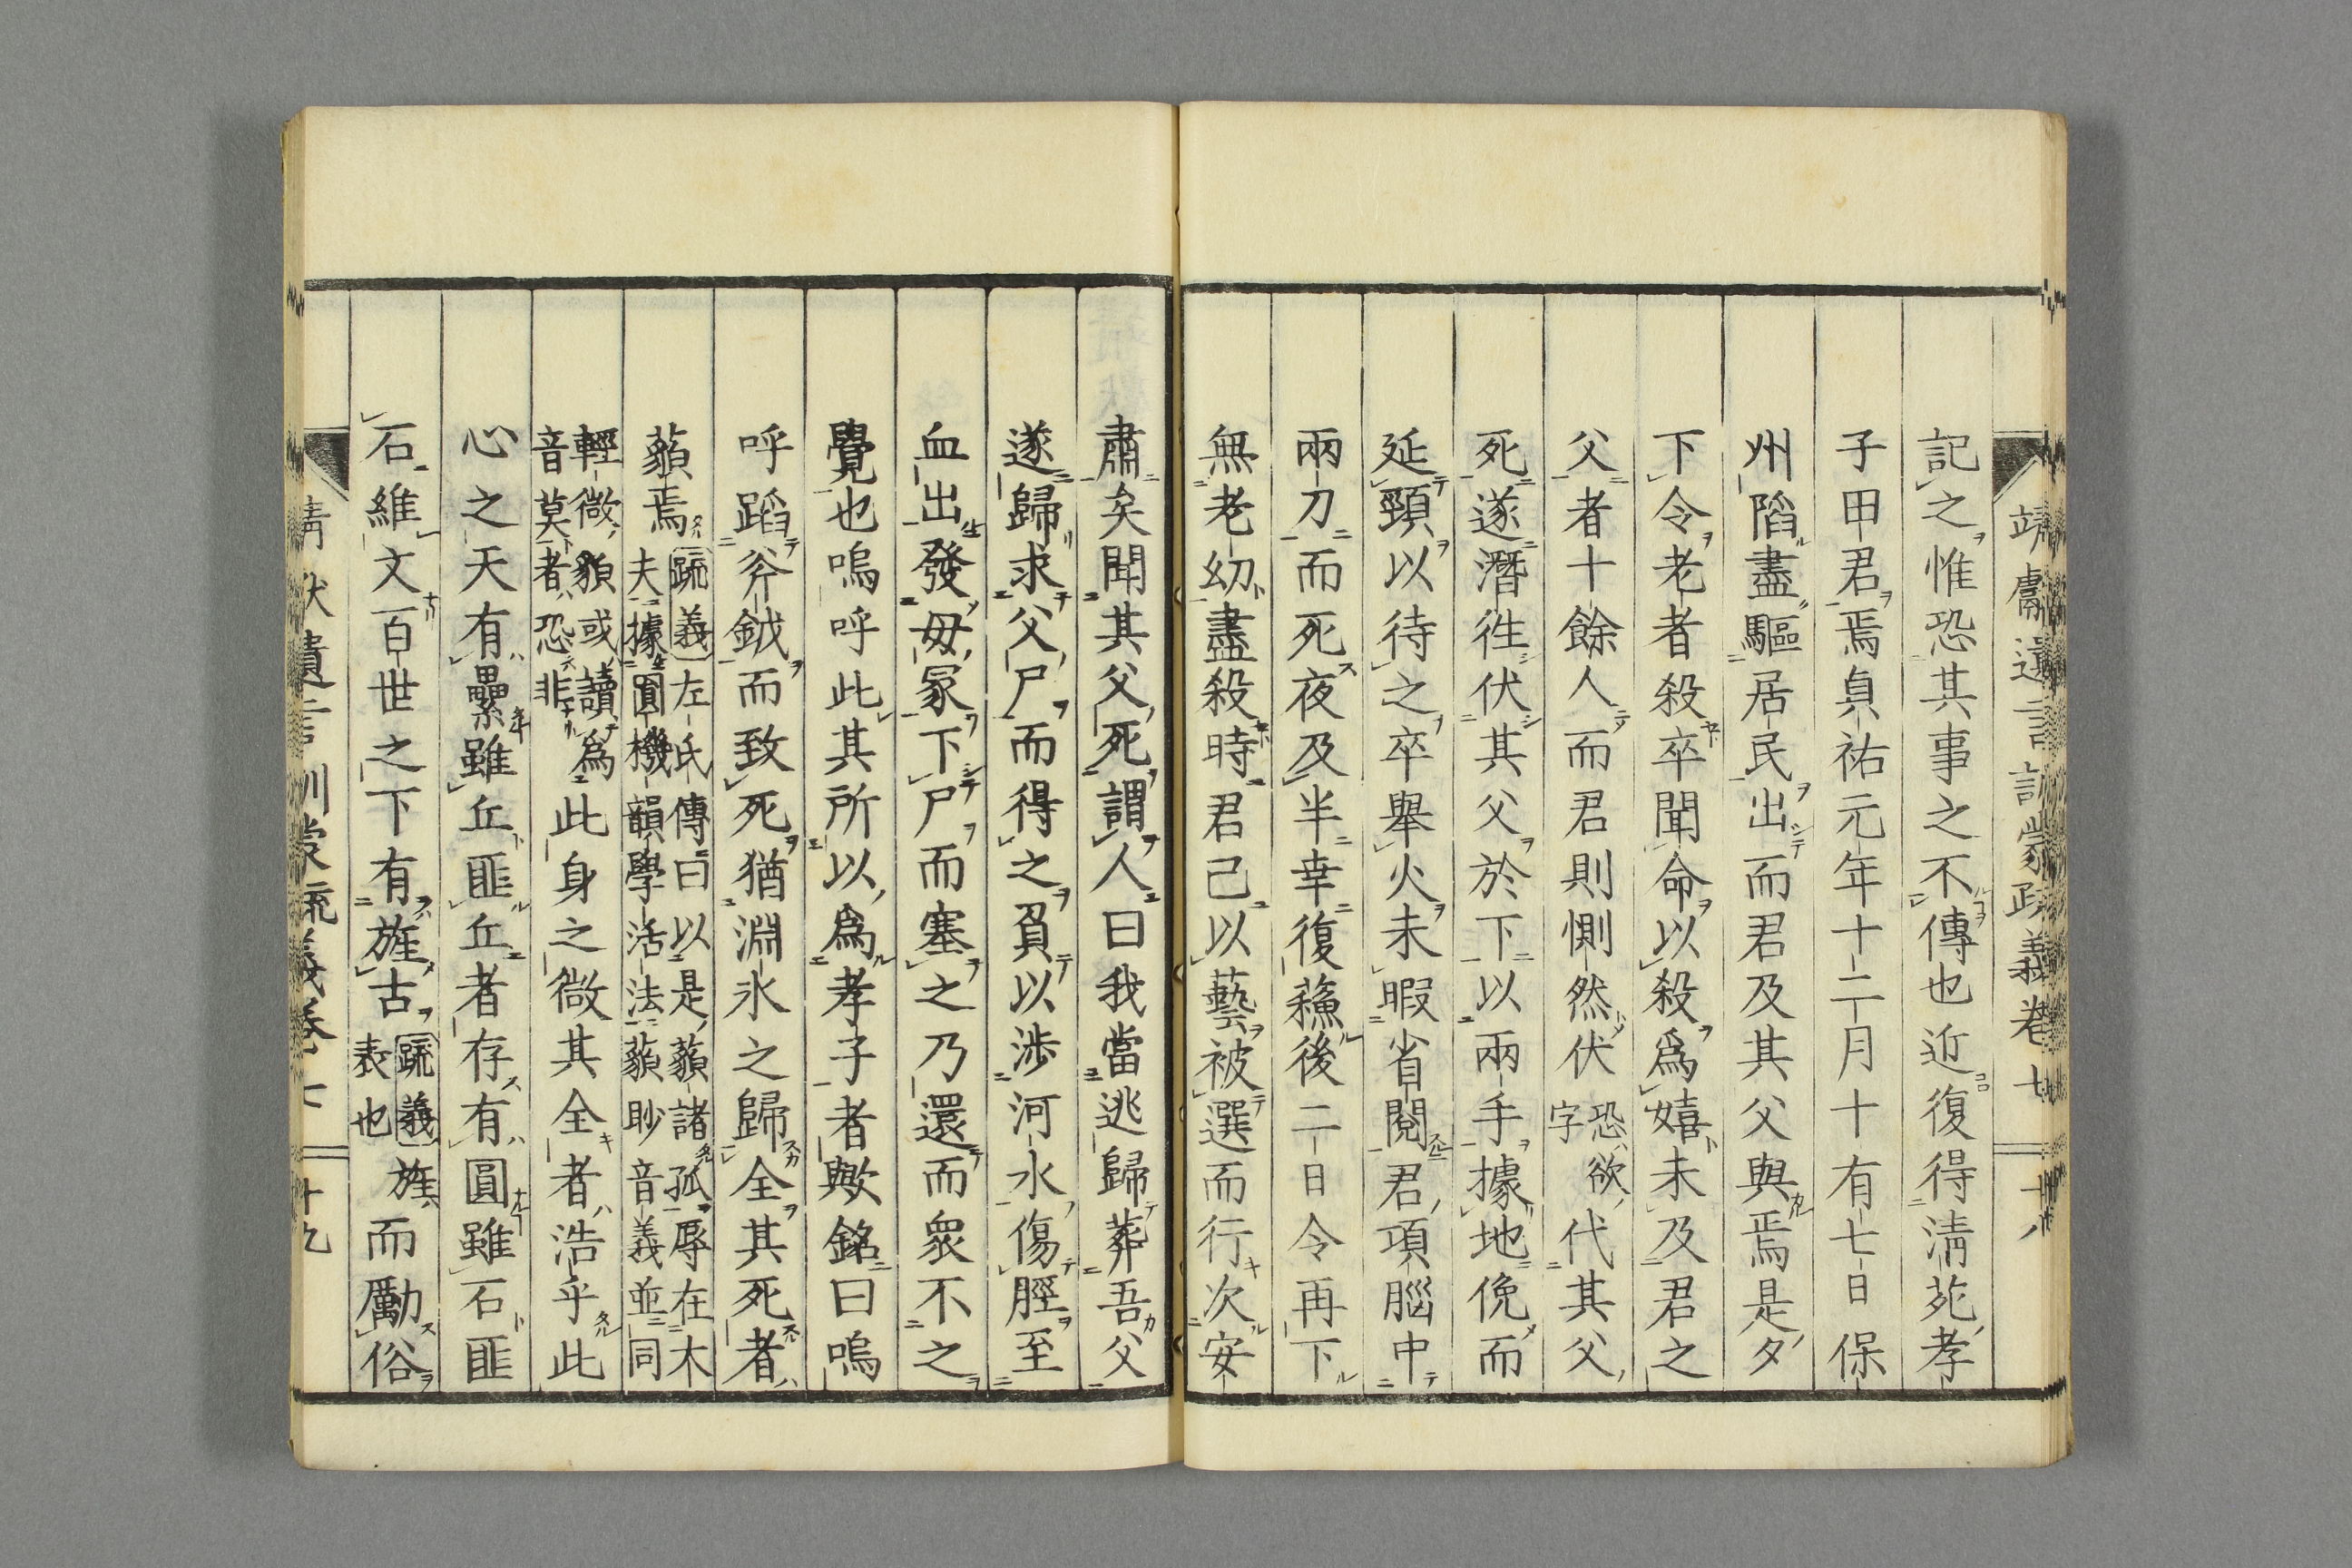 靖獻遺言訓蒙疏義卷七　十八
記之惟恐其事之不傳也近復得淸苑孝
子田君焉貞祐元年十二月十有七日保
州陷盡驅居民出而君及其父與焉是夕
下令老者殺卒聞命以殺爲嬉未及君之
父者十餘人而君則惻然伏恐欲字代其父
死遂潛徃伏其父於下以兩手據地俛而
延頸以待之卒舉火未暇省閱君項腦中
兩刀而死夜及半幸復穌後二日令再下
無老幼盡殺時君己以藝被選而行次安
肅矣聞其父死謂人曰我當逃歸葬吾父
遂歸求父尸而得之負以渉河水傷脛至
血出發毋冢下尸而塞之乃還而衆不之
覺也嗚呼此其所以爲孝子者歟銘曰嗚
呼蹈斧鉞而致死猶淵氷之歸全其死者
藐焉疏義左氏傳曰以是藐諸孤辱在木
夫據圓機韻學活法藐眇音義並同
輕微貌或讀爲
音莫者恐非此身之微其全者浩乎此
心之天有纍雖丘匪丘者存有圓雖石匪
石維文百世之下有旌古疏義旌表也而勵俗
靖獻遺言訓蒙疏義卷七　十九